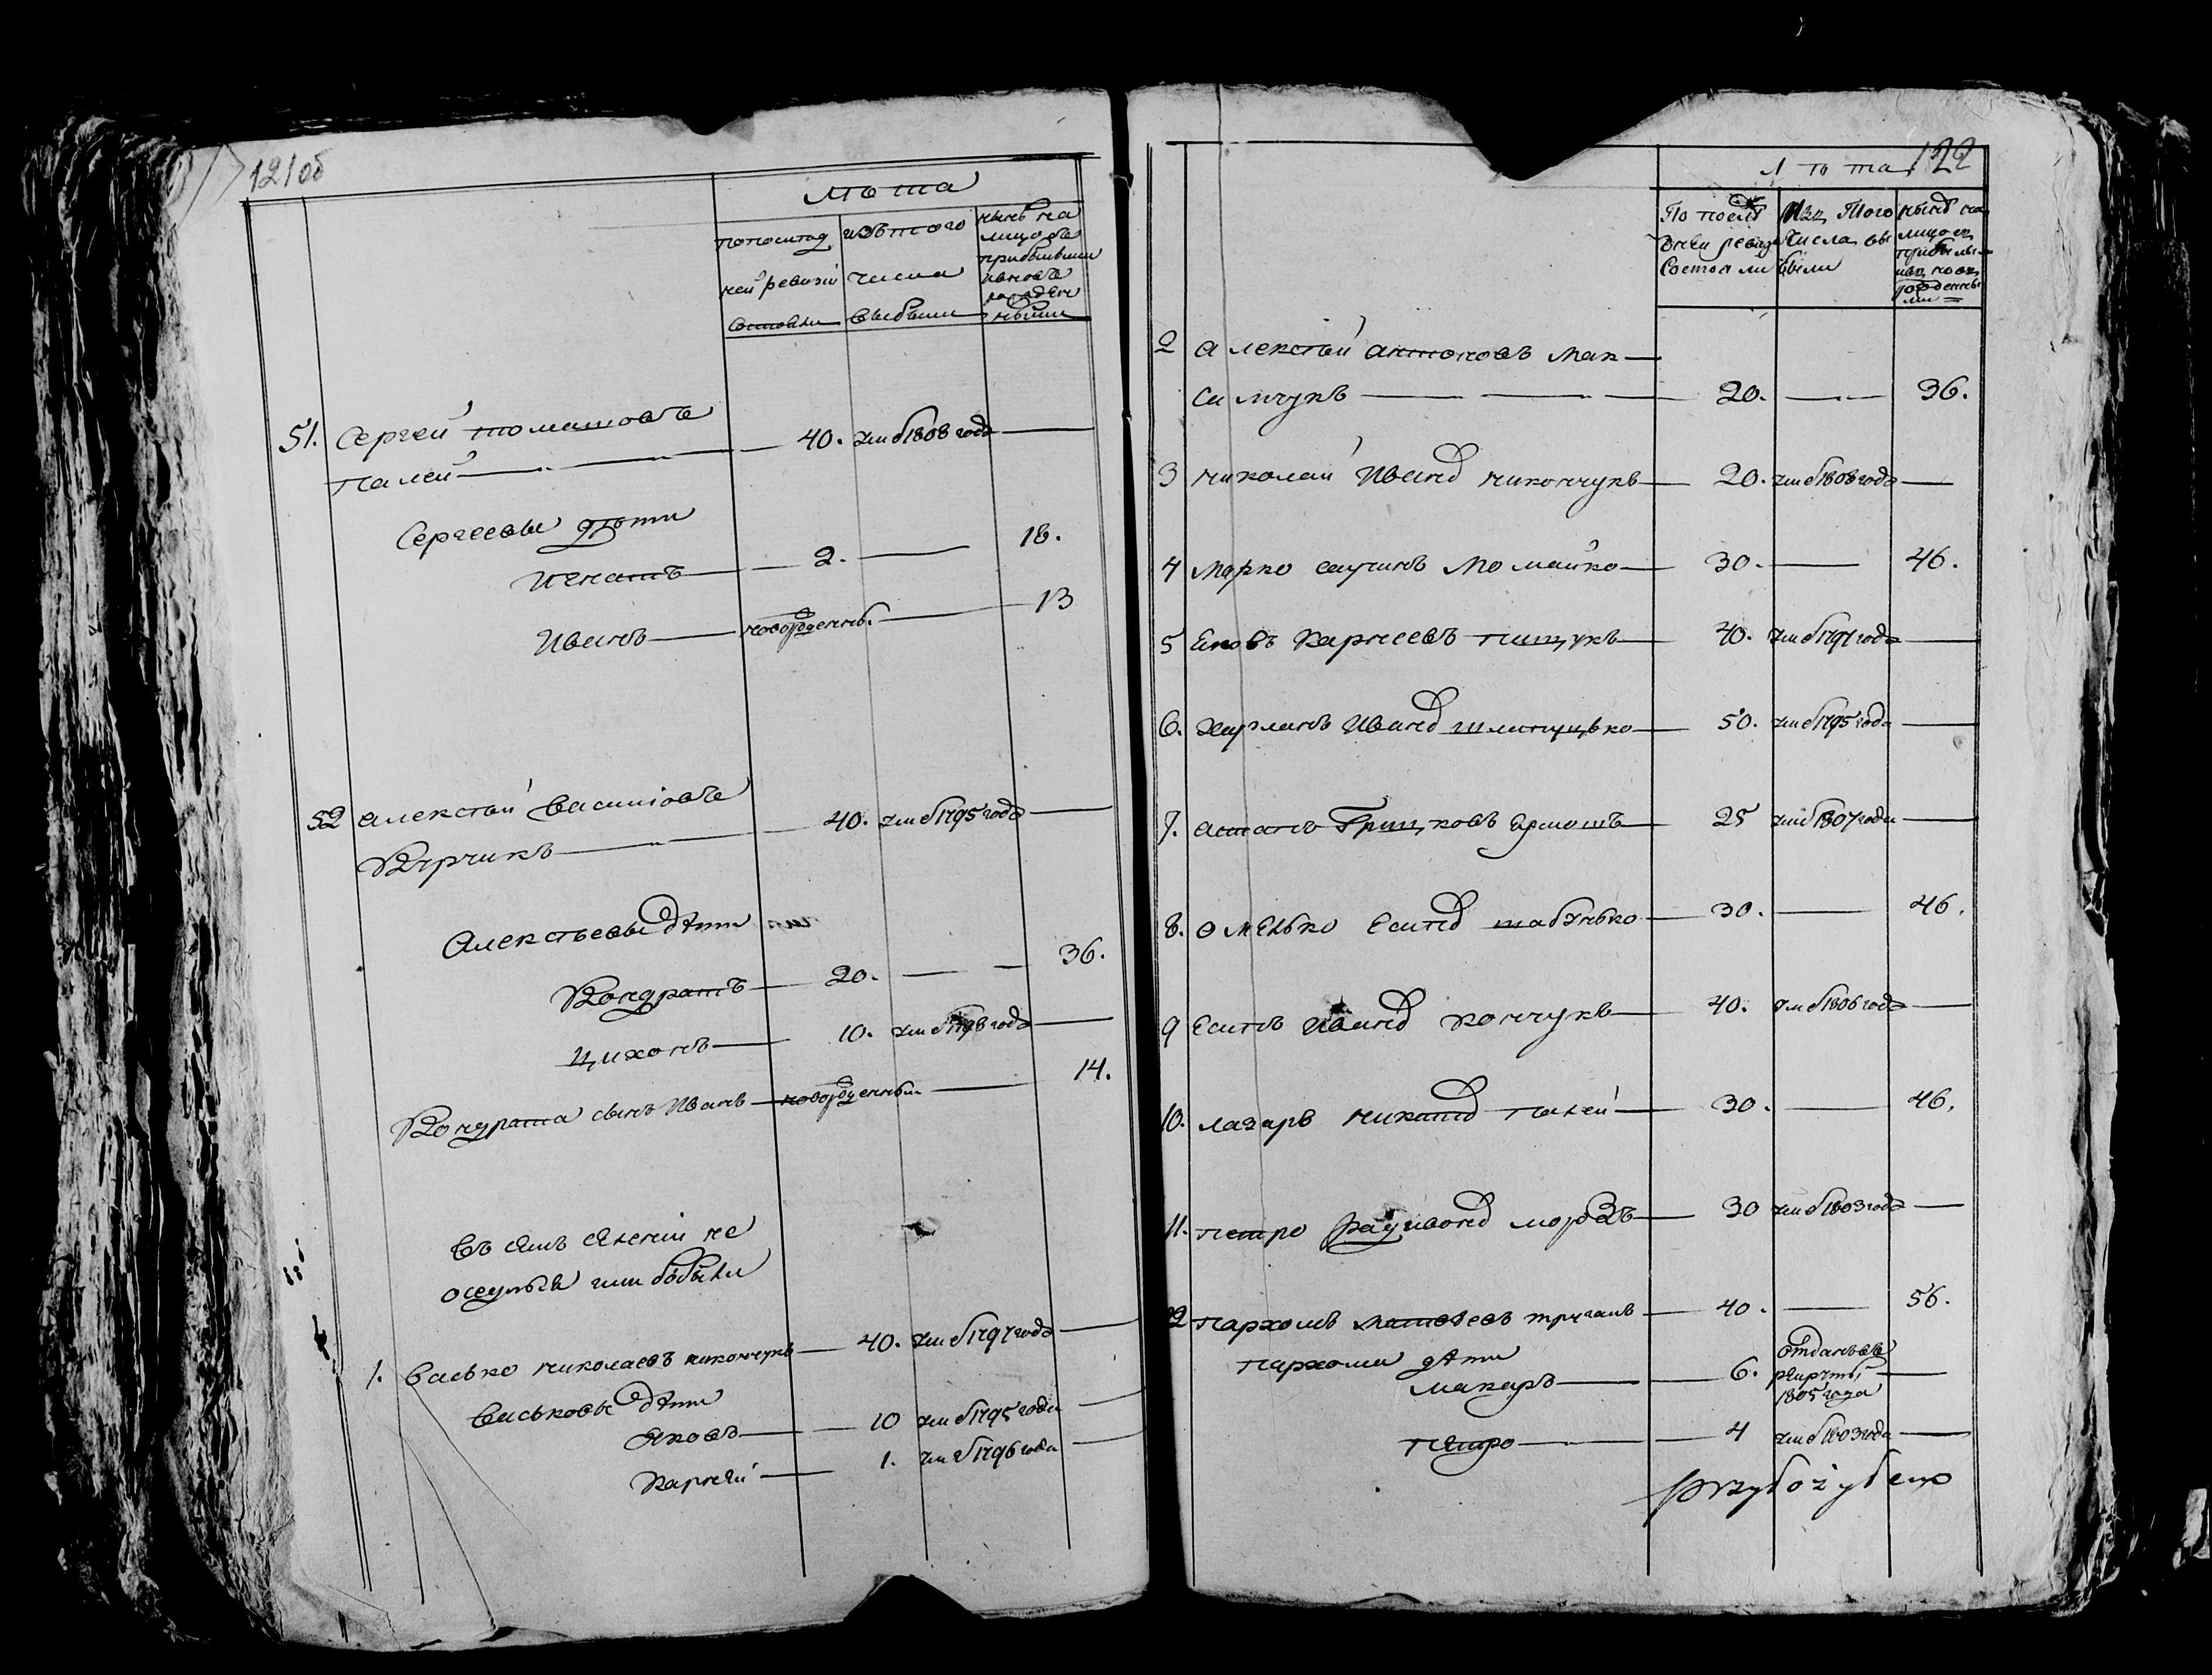 121об
Лѣта
попослѣд ней ревизіи состояли
изъ того числа выбыли
нынѣ на лицо съ прибывшими ивновь рожденными
51. Сергей томашовъ
палей 40. умеб 1808 года
Сергеевы дѣти
Игнатъ 2. 18.
Иванъ новорожденны. 13
52 алексѣй василіовъ
Кирчикъ 40. умеб 1795 года
Алексѣевы дѣти
Кондратъ 20. 36.
цихонъ 10. умеб 1798 года
Кондрата сынъ Иванъ новорожденный 14.
Въ семъ селеніи не
оседлые или бобыли
1. Васько николаевъ никончукъ 40. умеб 1797 года
Васьковы дѣти
Яковъ 10 умеб 1795 года
Карней 1. умеб 1796 года
122
Лѣта
По послѣ дней ревизіи Состояли
Изъ Того Числа вы были
нынѣ на лицо съ прибылы ми новорожденны ми
2 алексѣй антоновъ мак
симчукъ 20. 36.
3 николай Иванд никончукъ 20. умеб 1808 года
4 марко Момайко 30. 46.
5 Яковъ Карнеевъ пищукъ 40. умеб 1797 года
6. харланъ Иванд 50. умеб 1795 года
7. астапъ Грицковъ ермошъ 25 умеб 1807 года
8. омелько Есипд шабунько 30. 46.
9 Есипъ Иванд кончукъ 40. умеб 1806 года
10. лазаръ никитд палей 30. 46.
11. петро радивонд морозъ 30 умеб 1803 года
12 пархомъ матвѣевъ 40. 56.
пархома дѣти
макаръ 6. отданъ въ рекруты 1805 года
петро 4 умеб 1803 года